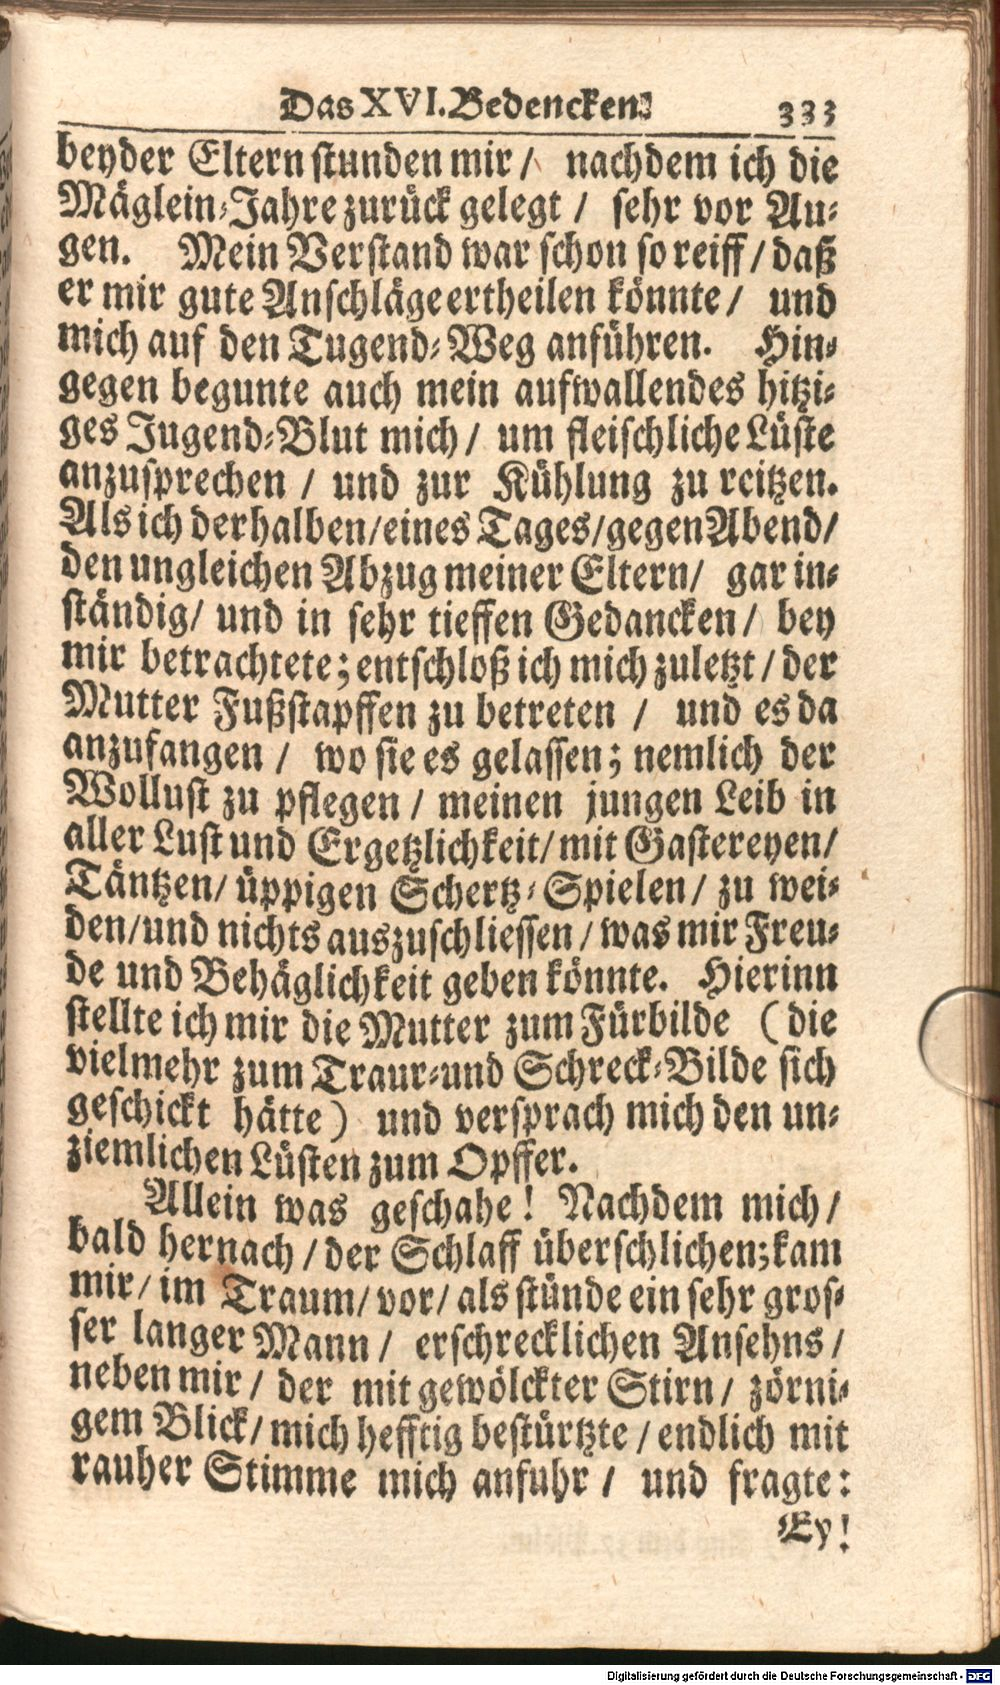 Das XVI. Bedencken. 333
beyder Eltern stunden mir / nachdem ich die
Mäglein-Jahre zurück gelegt / sehr vor Au-
gen. Mein Verstand war schon so reiff / daß
er mir gute Anschläge ertheilen könnte / und
mich auf den Tugend-Weg anführen. Hin-
gegen begunte auch mein aufwallendes hitzi-
ges Jugend-Blut mich / um fleischliche Lüste
anzusprechen / und zur Kühlung zu reitzen.
Als ich derhalben / eines Tages / gegen Abend /
den ungleichen Abzug meiner Eltern / gar in-
ständig / und in sehr tieffen Gedancken / bey
mir betrachtete; entschloß ich mich zuletzt / der
Mutter Fußstapffen zu betreten / und es da
anzufangen / wo sie es gelassen; nemlich der
Wollust zu pflegen / meinen jungen Leib in
aller Lust und Ergetzlichkeit / mit Gastereyen /
Täntzen / üppigen Schertz-Spielen / zu wei-
den / und nichts auszuschliessen / was mir Freu-
de und Behäglichkeit geben könnte. Hierinn
stellte ich mir die Mutter zum Fürbilde (die
vielmehr zum Traur-und Schreck-Bilde sich
geschickt hätte) und versprach mich den un-
ziemlichen Lüsten zum Opffer.
Allein was geschahe! Nachdem mich /
bald hernach / der Schlaff überschlichen; kam
mir / im Traum / vor / als stünde ein sehr gros-
ser langer Mann / erschrecklichen Ansehns /
neben mir / der mit gewölckter Stirn / zörni-
gem Blick / mich hefftig bestürtzte / endlich mit
rauher Stimme mich anfuhr / und fragte:
Ey!
Digitalisierung gefördert durch die Deutsche Forschungsgemeinschaft - DFG